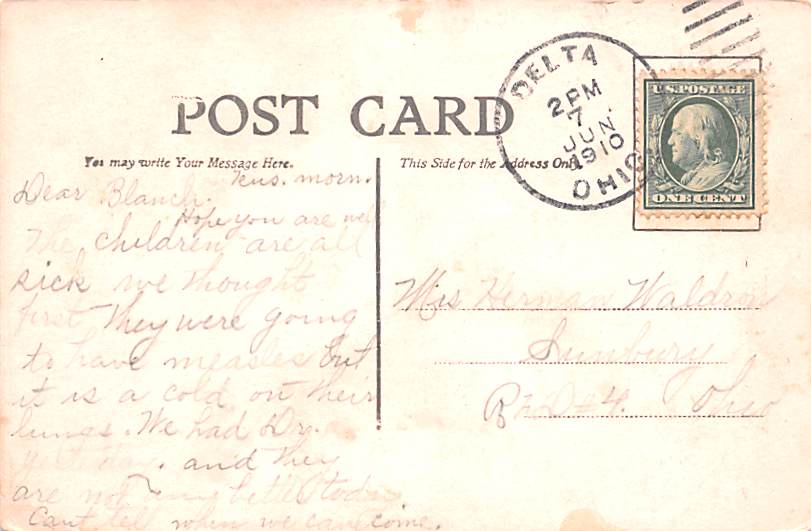 POST CARD
You may write Your Message Here.
This Side for the Address Only
DELTA
2 PM
7
JUN
1910
OHIO
U.S. POSTAGE
ONE CENT
Tues. morn.
Dear Blanch.
Hope you are well
The children are all
sick we thought
first they were going
to have measles but
it is a cold on their
lungs. We had Dr.
yesterday. and they
are not any better today
Cant tell when we can come.
Mrs Herman Waldron
Sunbury
R F D #4. Ohio